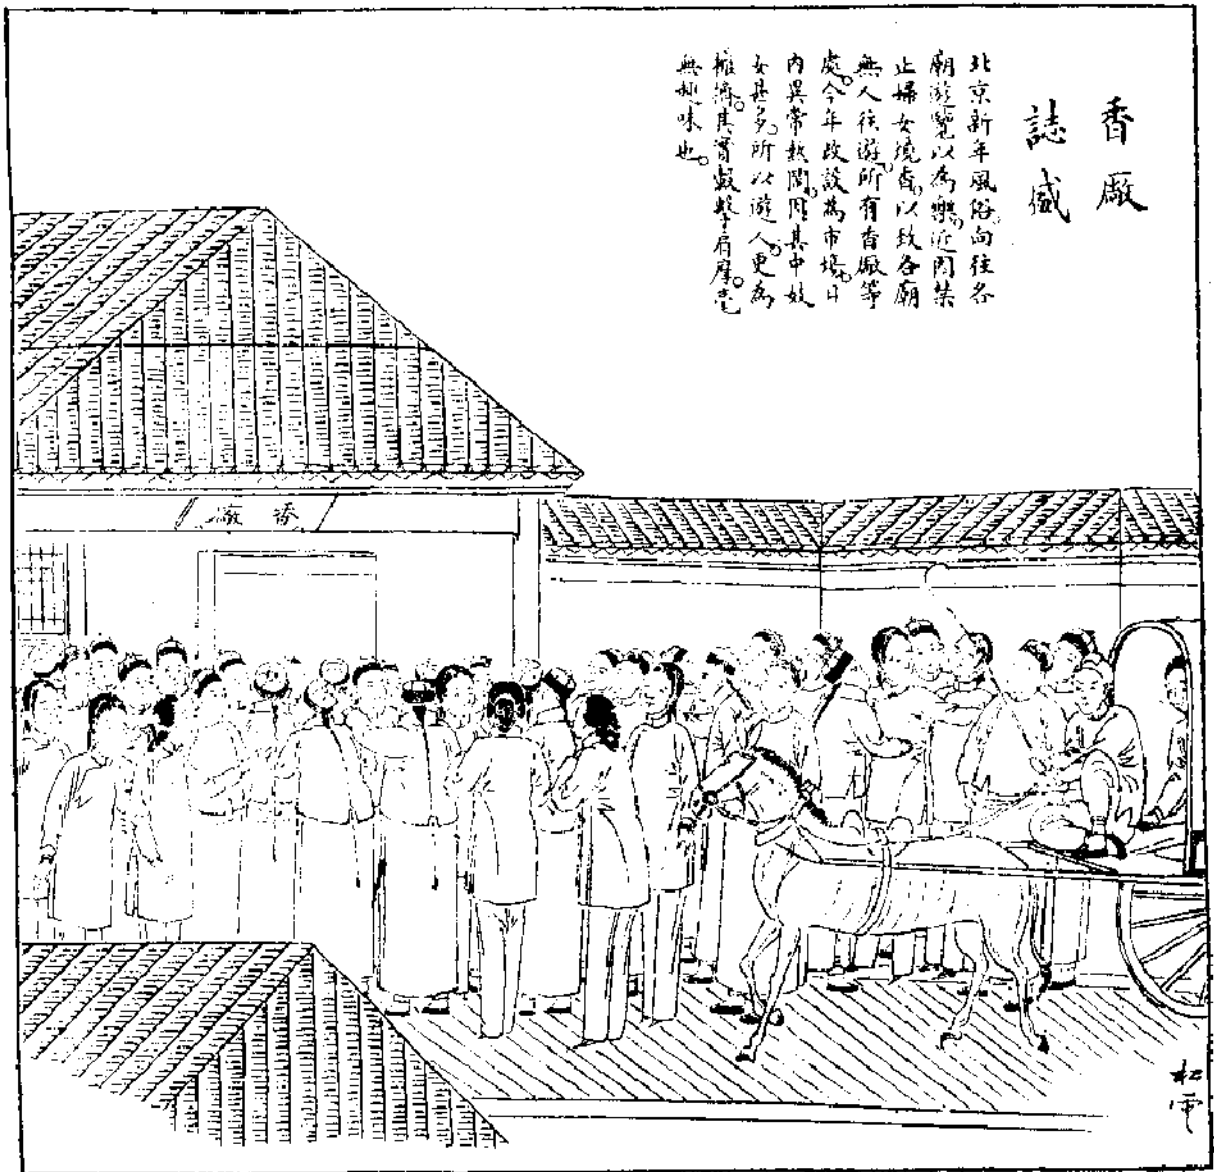 香廠
誌盛
北京新年風俗。向往各
廟遊覽以為樂。近因禁
止婦女燒香。以致各廟
無人往遊。所有香廠等
處。今年改設為市場。日
內異常熱鬧。因其中妓
女甚多。所以遊人。更為
擁擠。其實轂擊肩摩。毫
無趣味也。
香廠
松雪